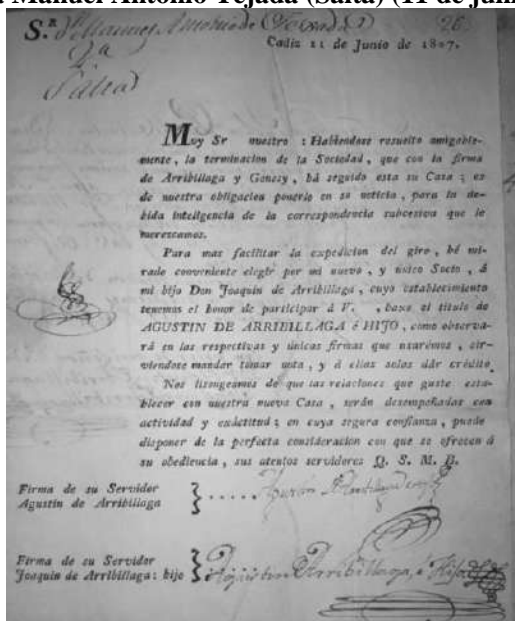 Manuel Antonio Tejada (Salta) (11 de jun
S.ʳ Dⁿ Manuel Antonio de Texada
26
Cadiz 11 de Junio de 1807.
Salta
Muy Sr nuestro : Habiendose resuelto amigable-
mente, la terminacion de la Sociedad, que con la firma
de Arribillaga y Goncsy, há seguido esta su Casa ; es
de nuestra obligacion ponerlo en su noticia, para la de-
bida inteligencia de la correspondencia subcesiva que le
merezcamos.
Para mas facilitar la expedicion del giro, hé mi-
rado conveniente elegir por mi nuevo, y único Socio, á
mi hijo Don Joaquin de Arribillaga, cuyo establecimiento
tenemos el honor de participar á V. , baxo el título de
AGUSTIN DE ARRIBILLAGA é HIJO, como observa-
rá en las respectivas y únicas firmas que usarémos, sir-
viendose mandar tomar nota, y á ellas solas dár crédito.
Nos lisongeamos de que las relaciones que guste esta-
blecer con nuestra nueva Casa, serán desempeñadas con
actividad y exâctitud ; en cuya segura confianza, puede
disponer de la perfecta consideracion con que se ofrecen á
su obediencia, sus atentos servidores Q. S. M. B.
Firma de su Servidor
Agustin de Arribillaga
Agustin de Arribillaga é hijo
Firma de su Servidor
Joaquin de Arribillaga : hijo
Agustin de Arribillaga, é Hijo